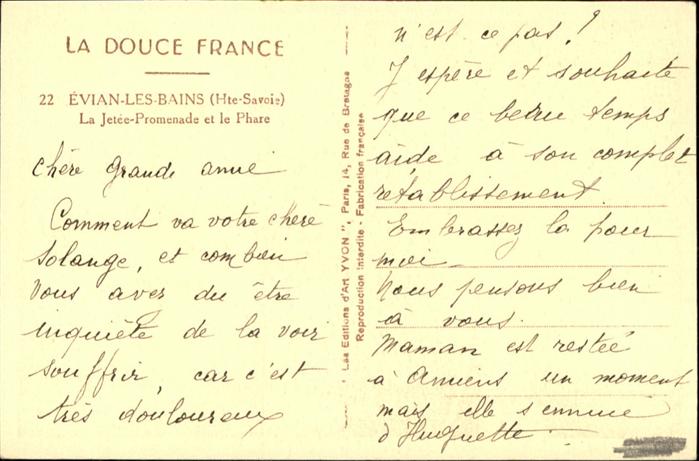 LA DOUCE FRANCE
22 ÉVIAN-LES-BAINS (Hte-Savoie)
La Jetée-Promenade et le Phare
Chère grande amie
Comment va votre chère
Solange, et combien
vous avez du être
inquiète de la voir
souffrir, car c'est
très douloureux
"Les Editions d'Art YVON", Paris, 14, Rue de Bretagne
Reproduction interdite - Fabrication française
n'est ce pas !
J'espère et souhaite
que ce beau temps
aide à son complet
rétablissement.
Embrassez la pour
moi
Nous pensons bien
à vous.
Maman est restée
à Amiens un moment
mais elle s'ennuie
d'Huguette.